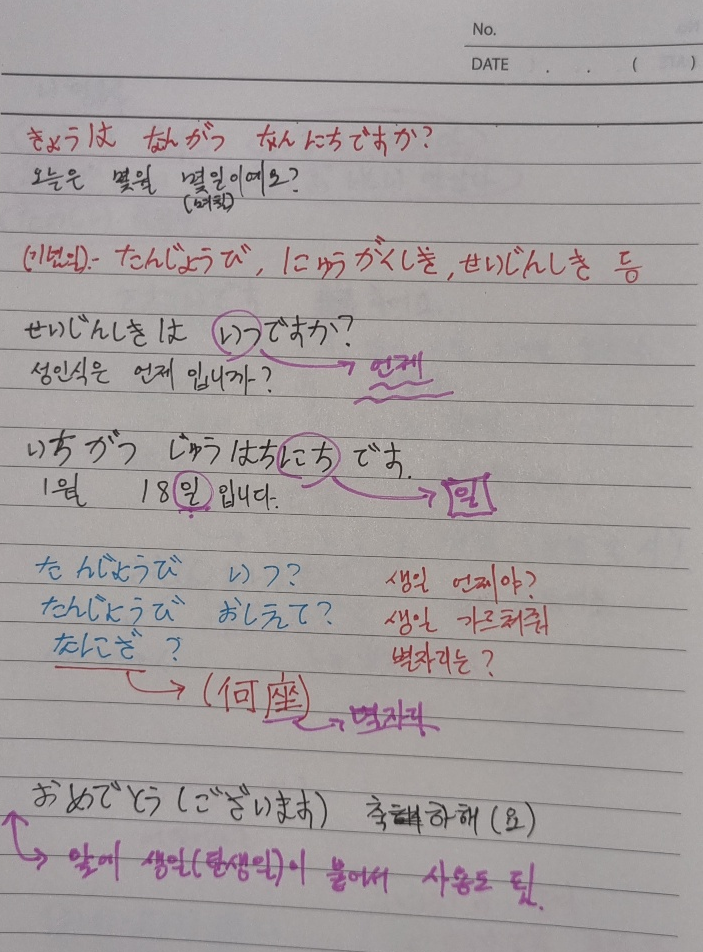 No.
DATE . . ( )
きょうは なんがつ なんにちですか?
오늘은 몇월 몇일이에요?
(며칠)
(기념일)- たんじょうび, にゅうがくしき, せいじんしき 등
せいじんしきは いつですか?
성인식은 언제 입니까? 언제
いちがつ じゅうはちにち です.
1월 18일 입니다. 일
たんじょうび いつ? 생일 언제야?
たんじょうび おしえて? 생일 가르쳐줘
なにざ? 별자리는?
(何座) 별자리
おめでとう(ございます) 축하해(요)
앞에 생일(탄생일)이 붙어서 사용도 됨.